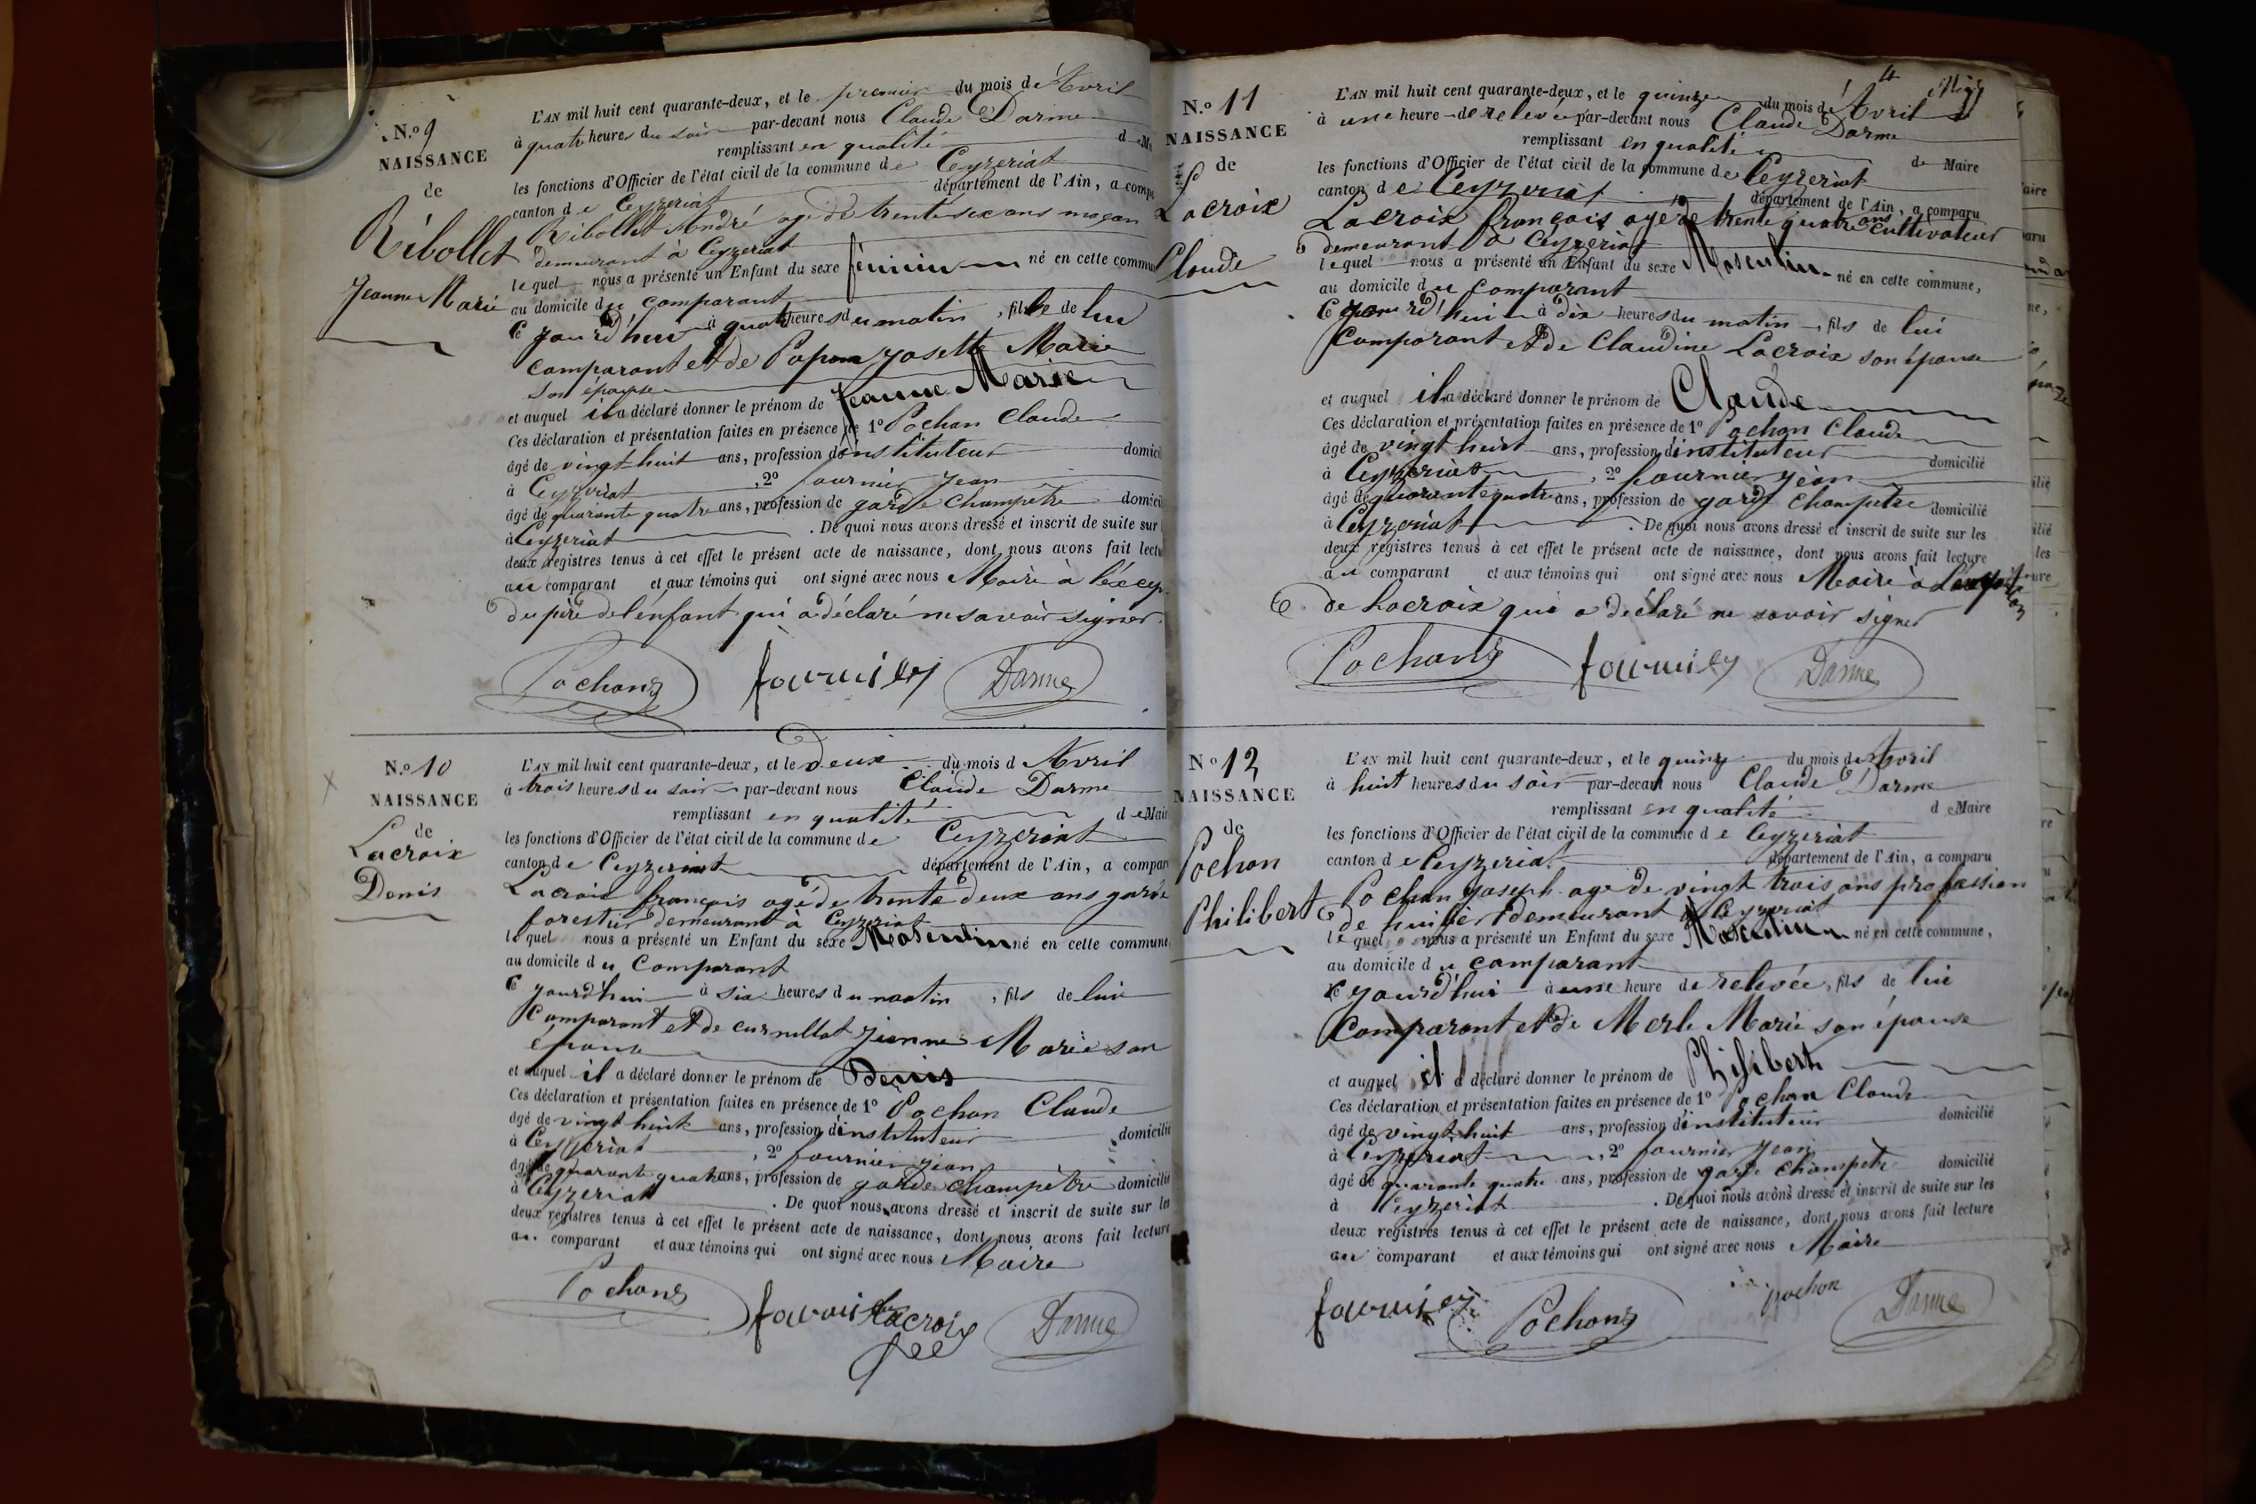 N.o 9
NAISSANCE
de
Ribollet
Jeanne Marie
L'AN mil huit cent quarante-deux, et le premier du mois d'Avril
à quatre heures du soir par-devant nous Claude Darme
remplissant en qualité de
les fonctions d'Officier de l'état civil de la commune de Ceyzeriat
canton de Ceyzeriat département de l'Ain, a compa
Ribollet André agé de trente six ans maçon
demeurant à Ceyzeriat
lequel nous a présenté un Enfant du sexe féminin né en cette commun
au domicile du comparant
ce jourd'hui à quatre heures du matin, fille de lui
comparant et de Josette Marie
son épouse
et auquel il a déclaré donner le prénom de Jeanne Marie
Ces déclaration et présentation faites en présence de 1o Pochon Claude
âgé de vingt huit ans, profession d'instituteur domicil
à Ceyzeriat, 2o fournier jean
âgé de quarante quatre ans, profession de garde champêtre domicil
à Ceyzeriat. De quoi nous avons dressé et inscrit de suite sur
deux registres tenus à cet effet le présent acte de naissance, dont nous avons fait lectu
au comparant et aux témoins qui ont signé avec nous Maire à l'excep
du père de l'enfant qui a déclaré ne savoir signer
Pochon fournier Darme
N.o 10
NAISSANCE
de
Lacroix
Denis
L'AN mil huit cent quarante-deux, et le deux du mois d Avril
à trois heures du soir par-devant nous Claude Darme
remplissant en qualité de Mair
les fonctions d'Officier de l'état civil de la commune de Ceyzeriat
canton de Ceyzeriat département de l'Ain, a compar
Lacroix françois agé de trente deux ans garde
forestier demeurant à Ceyzeriat
lequel nous a présenté un Enfant du sexe Masculin né en cette commune
au domicile du comparant
ce jourd'hui à six heures du matin, fils de lui
comparant et de jeanne Marie son
épouse
et auquel il a déclaré donner le prénom de Denis
Ces déclaration et présentation faites en présence de 1o Pochon Claude
âgé de vingt huit ans, profession d'instituteur domicilié
à Ceyzeriat, 2o fournier jean
âgé de quarante quatre ans, profession de garde champêtre domicilié
à Ceyzeriat. De quoi nous avons dressé et inscrit de suite sur les
deux registres tenus à cet effet le présent acte de naissance, dont nous avons fait lecture
au comparant et aux témoins qui ont signé avec nous Maire
Pochon fournier Lacroix Darme
N.o 11
NAISSANCE
de
Lacroix
Claude
L'AN mil huit cent quarante-deux, et le quinze du mois d'Avril
à une heure de relevée par-devant nous Claude Darme
remplissant en qualité de Maire
les fonctions d'Officier de l'état civil de la commune de Ceyzeriat
canton de Ceyzeriat département de l'Ain, a comparu
Lacroix françois agé de trente quatre ans cultivateur
demeurant à Ceyzeriat
lequel nous a présenté un Enfant du sexe Masculin né en cette commune,
au domicile du comparant
ce jourd'hui à dix heures du matin, fils de lui
comparant et de Claudine Lacroix son épouse
et auquel il a déclaré donner le prénom de Claude
Ces déclaration et présentation faites en présence de 1o Pochon Claude
âgé de vingt huit ans, profession d'instituteur domicilié
à Ceyzeriat, 2o fournier jean
âgé de quarante quatre ans, profession de garde champêtre domicilié
à Ceyzeriat. De quoi nous avons dressé et inscrit de suite sur les
deux registres tenus à cet effet le présent acte de naissance, dont nous avons fait lecture
au comparant et aux témoins qui ont signé avec nous Maire à l'exception
de Lacroix qui a déclaré ne savoir signer
Pochon fournier Darme
No 12
NAISSANCE
de
Pochon
Philibert
L'AN mil huit cent quarante-deux, et le quinze du mois d'Avril
à huit heures du soir par-devant nous Claude Darme
remplissant en qualité de Maire
les fonctions d'Officier de l'état civil de la commune de Ceyzeriat
canton de Ceyzeriat département de l'Ain, a comparu
Pochon joseph agé de vingt trois ans profession
de demeurant à Ceyzeriat
lequel nous a présenté un Enfant du sexe Masculin né en cette commune,
au domicile du comparant
ce jourd'hui à une heure de relevée, fils de lui
comparant et de Merle Marie son épouse
et auquel il a déclaré donner le prénom de Philibert
Ces déclaration et présentation faites en présence de 1o Pochon Claude
âgé de vingt huit ans, profession d'instituteur domicilié
à Ceyzeriat, 2o fournier jean
âgé de quarante quatre ans, profession de garde champêtre domicilié
à Ceyzeriat. De quoi nous avons dressé et inscrit de suite sur les
deux registres tenus à cet effet le présent acte de naissance, dont nous avons fait lecture
au comparant et aux témoins qui ont signé avec nous Maire
fournier Pochon pochon Darme